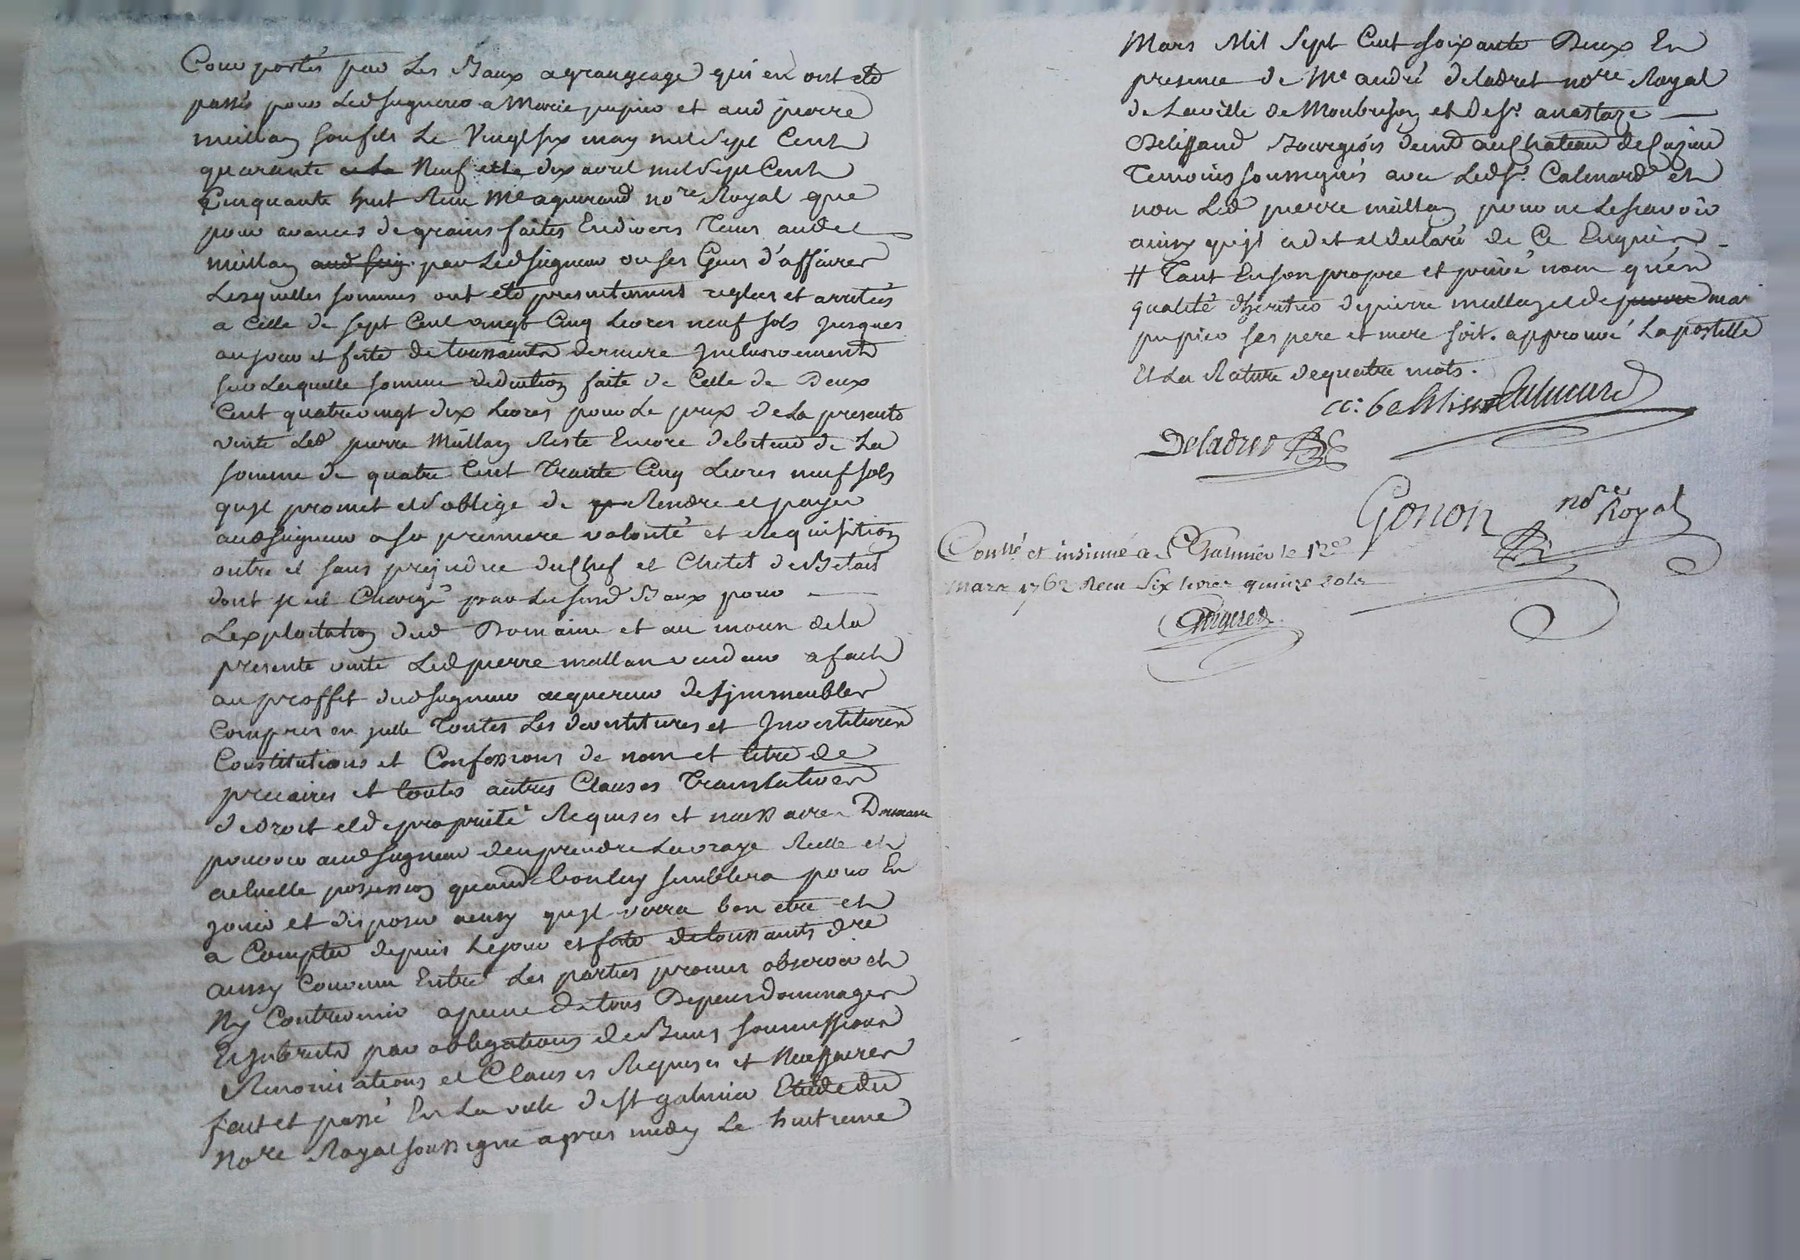 Comportés par Les Baux agrangeage qui en ont eté
passés pour Ledseigneur a Marie pupier et aud pierre
mullan son fils Le Vingt six may mil Sept Cent
quarante Neuf et le dix avril mil Sept Cent
Cinquante huit Recu Me agurand nore Royal que
pour avances de grains faites Endivers Tems audet
mullan par Ledseigneur ou ses Gens d'affaires
Lesquelles sommes ont eté presentement reglees et arretées
a Celle de sept Cent vingt Cinq Livres neuf sols Jusques
au jour et fete de toussaints derniere Inclusivement
sur Laquelle somme deduction faite de Celle de Deux
Cent quatrevingt dix Livres pour Le prix de La presente
vente Led pierre Mullan Reste Encore debiteur de La
somme de quatre Cent Trante Cinq Livres neuf sols
qu'jl promet et s'oblige de Rendre et payer
audseigneur a sa premiere volonté et Requisition
outre et sans prejudice du Chef et Chetel de Betail
dont jl est Chargé par Les susd Baux pour
L'exploitation dud Domaine et au moien de la
presente vente Led pierre mullan vendeur a fait
au proffit dud seigneur acquereur des jmmeubles
Compris en jcelle Toutes Les devestitures et Jnvestitures
Constitutions et Confessions de nom et titre de
precaires et toutes autres Clauses Translatives
de droit et de proprieté Requises et necessaires Donnant
pouvoir audseigneur d'en prendre La vraye Reelle et
actuelle possession quand bon luy semblera pour En
jouir et disposer ainsy qu'jl verra bon etre et
a Compter depuis Lejour et fete detoussaints dre
ainsy Convenu Entre Les parties promis observer et
Ny Contrevenir a peine de tous Depens dommages
Et jnterets par obligations de Biens soumissions
Renonciations et Clauses Requises et Necessaires
fait et passé En La ville de St galmier Etude du
Nore Royal soussigné apres midy Le huitieme
Mars Mil Sept Cent soixante Deux En
presence de Me andré deladret nore Royal
de La ville de Monbrison et de Sr. anastaze
Bourgeois demt au Chateau de
Temoins soussignés avec Ledsr. Calmard et
non Led pierre mullan pour ne Le sçavoir
ainsy qu'jl a dit et declaré de Ce Enquis
# Tant En son propre et privé nom qu'en
qualité d'heritier de pierre mullan et de mari
pupier ses pere et mere soit. approuvé La postille
Et La Rature de quatre mots.
Calmard
Deladret
Gonon nore Royal
Conllé et insinué a St Galmier le 12e
Mars 1762 Recu Six livres quinze sols